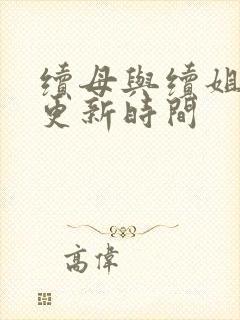 續母與續姐
更新時間
高偉